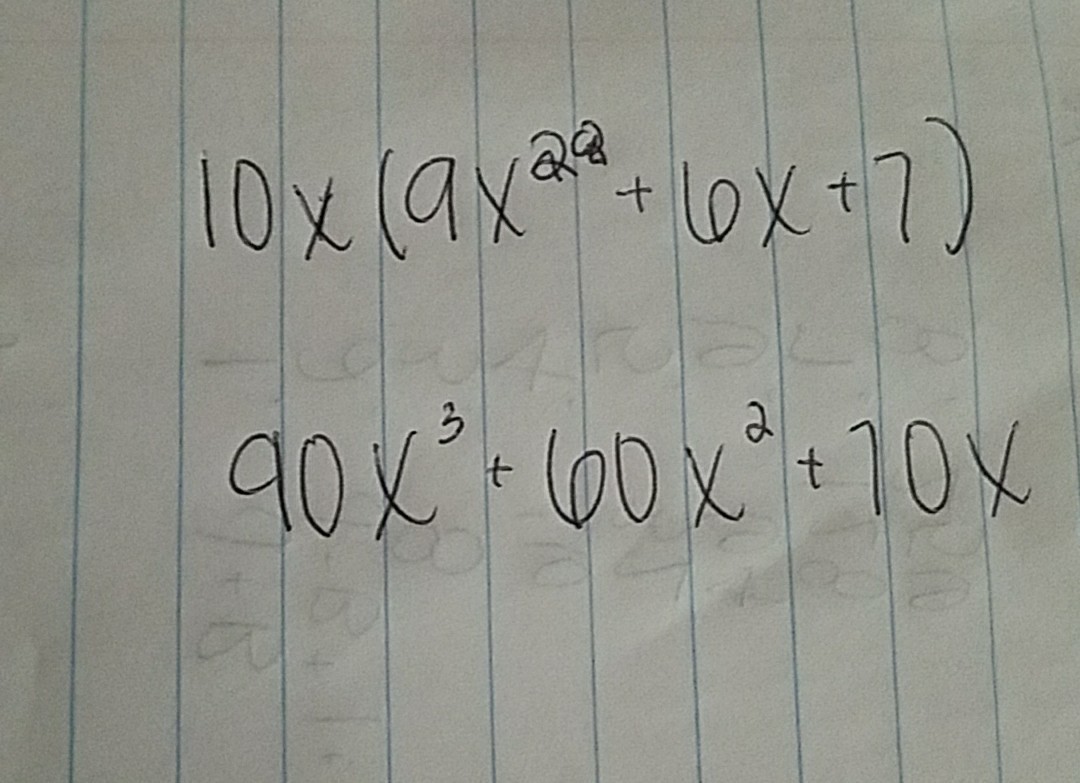 10x(9x²² + 6x + 7)
90x³ + 60x² + 70x